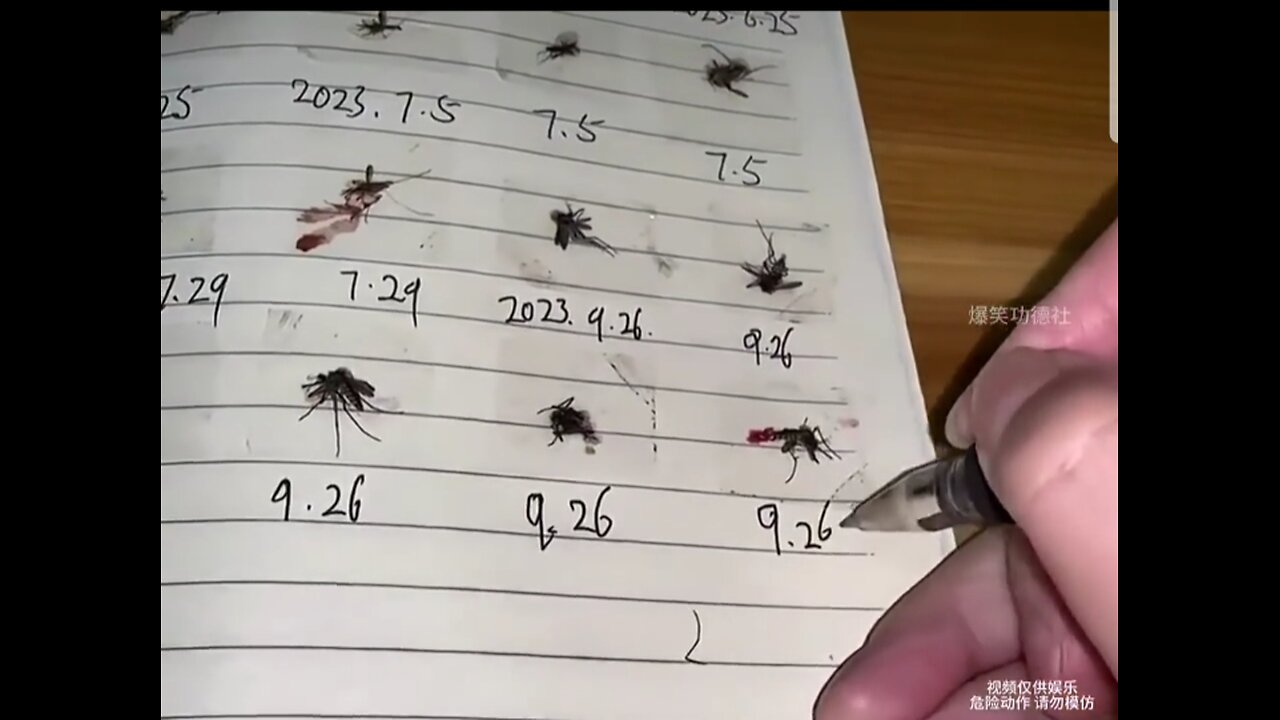 2023.6.25
25
2023.7.5
7.5
7.5
7.29
7.29
2023.9.26.
9.26
9.26
9.26
9.26
爆笑功德社
视频仅供娱乐
危险动作 请勿模仿